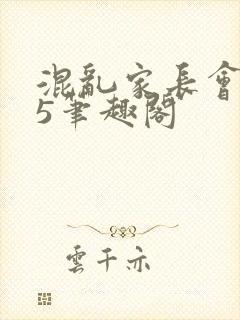 混亂家長會
5筆趣閣
雲千亦